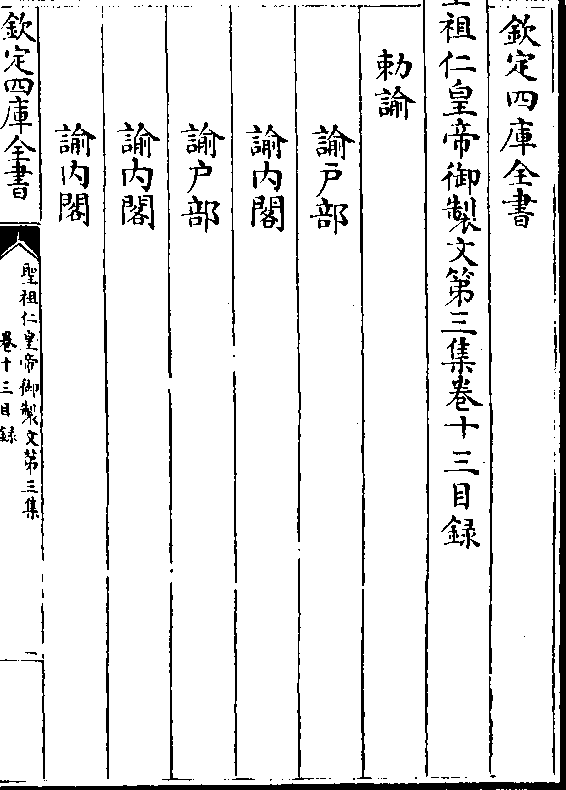 欽定四庫全書
聖祖仁皇帝御製文第三集卷十三目録
勅諭
諭戸部
諭内閣
諭户部
諭内閣
諭内閣
欽定四庫全書
聖祖仁皇帝御製文第三集
卷十三目録
一